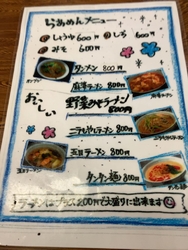 らあめんメニュー
しょうゆ 600円 しお 600円
みそ 600円
タンメン 800円
麻婆ラーメン 800円
おいしい
野菜みそラーメン 800円
ニラもやしラーメン 800円
五目ラーメン 800円
タンタン麺 800円
ラーメンはプラス200円で大盛りに出来ます